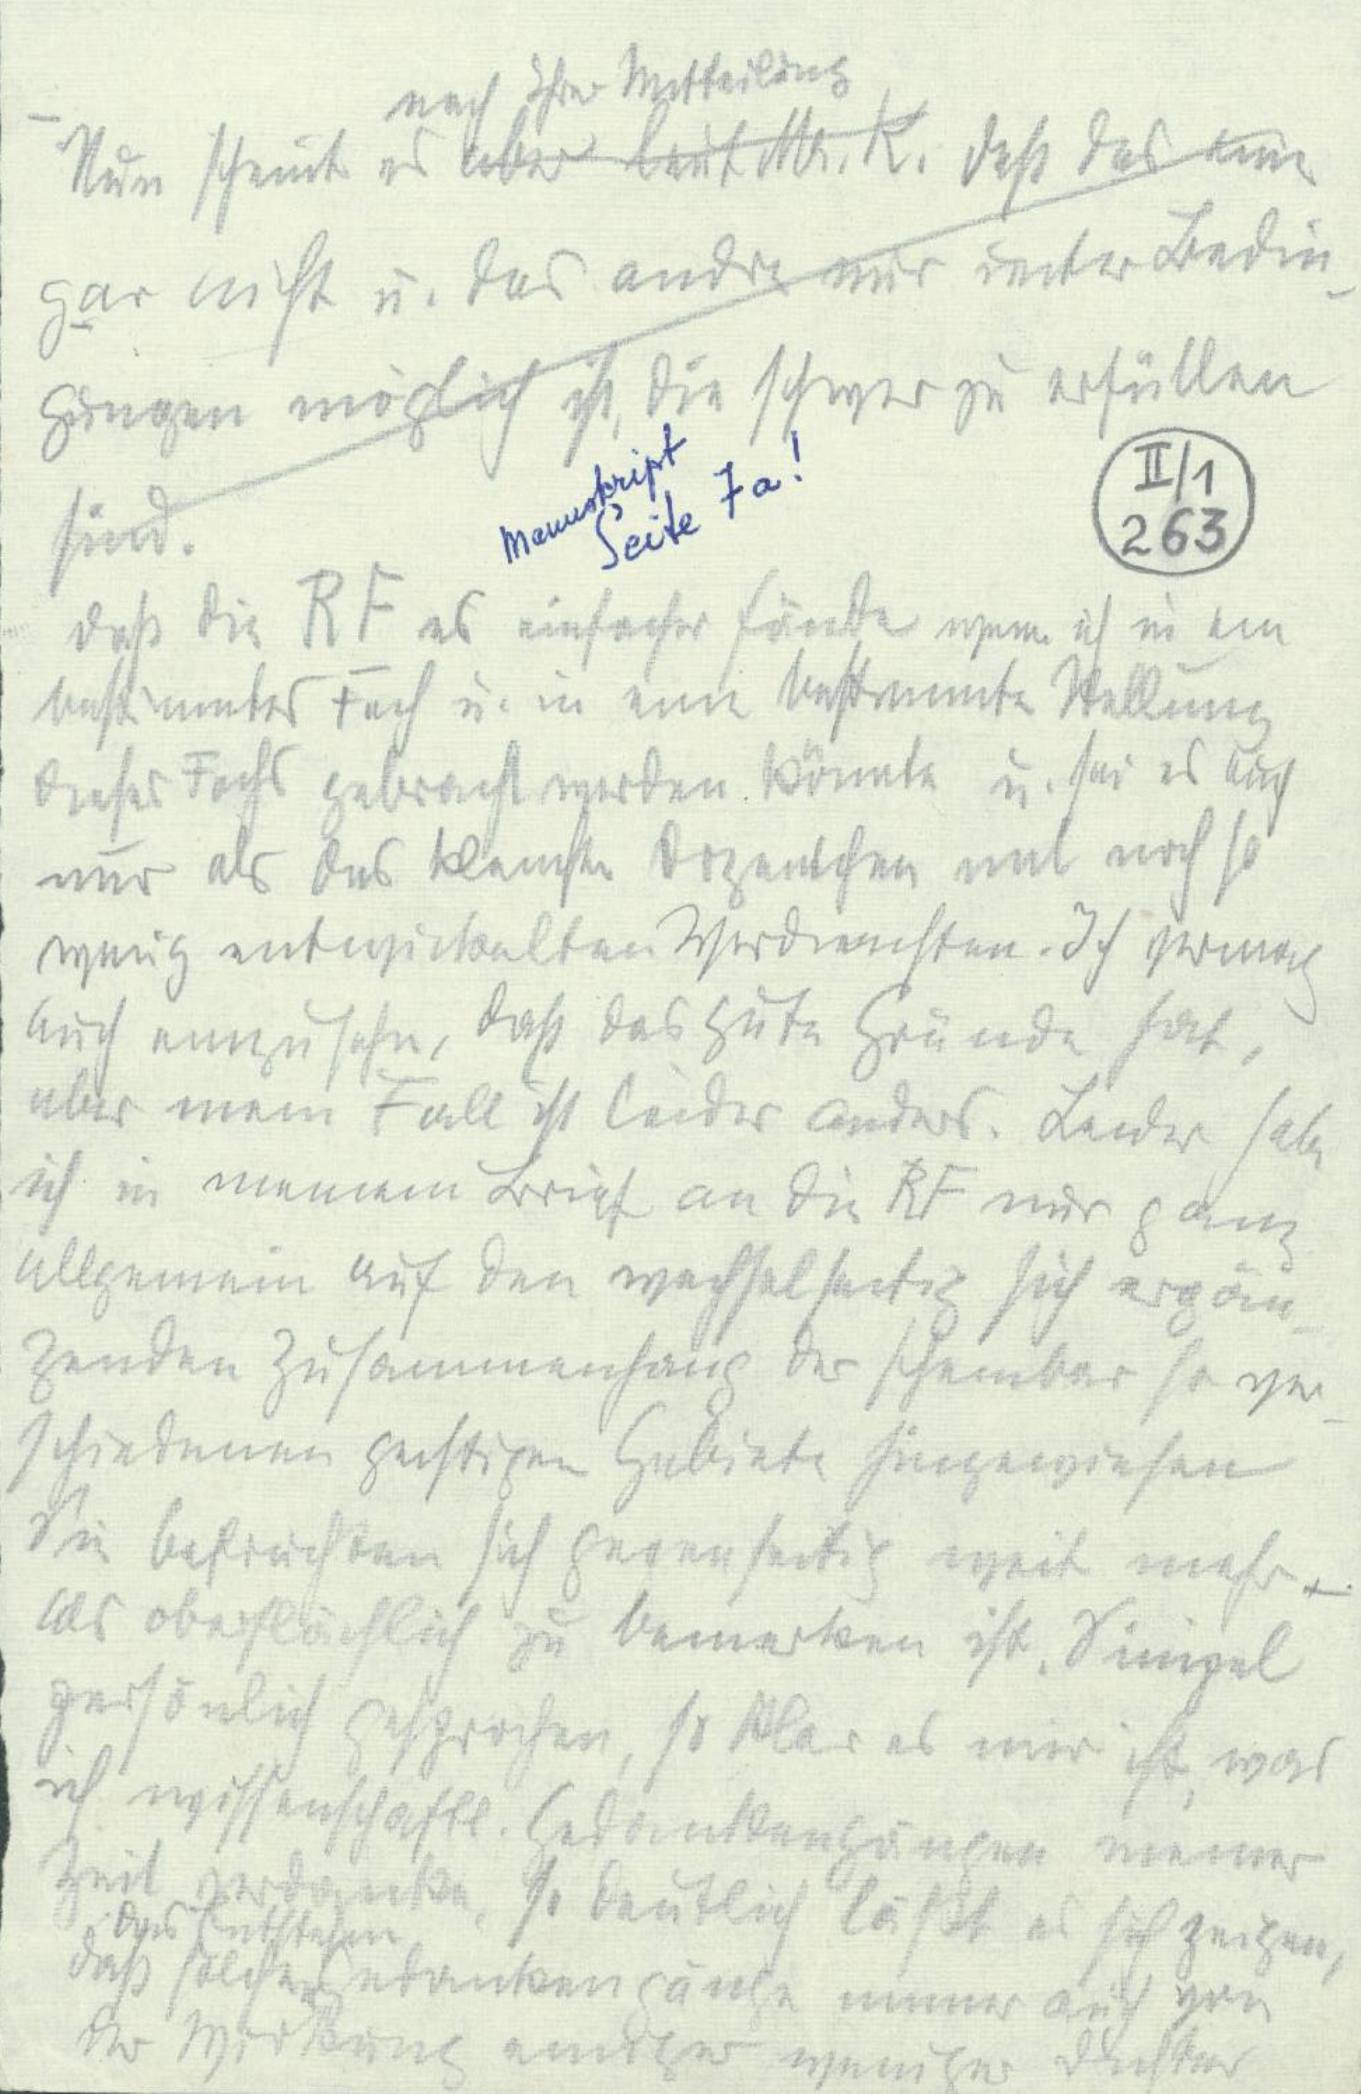 nach Ihrer Mitteilung
Nun scheint es aber laut Mr. K. daß das eine
gar nicht u. das andre nur unter Bedin-
gungen möglich ist, die schwer zu erfüllen
sind.
Manuskript
Seite 7a!
II/1
263
daß die RF es einfacher fände wenn ich in ein
bestimmtes Fach u. in eine bestimmte Stellung
dieses Fachs gebracht werden könnte u. sei es auch
nur als das kleinste Dozentchen mit noch so
wenig entwickelten Verdiensten. Ich vermag
auch einzusehn, daß das gute Gründe hat,
aber mein Fall ist leider anders. Leider habe
ich in meinem Brief an die RF nur ganz
allgemein auf den wechselseitig sich ergän-
zenden Zusammenhang der scheinbar so ver-
schiedenen geistigen Gebiete hingewiesen
Sie befruchten sich gegenseitig weit mehr
als oberflächlich zu bemerken ist.
persönlich gesprochen, so klar es mir ist, was
ich wissenschaftl. Gedankengängen meiner
Zeit verdanke, so deutlich läßt es sich zeigen,
das Entstehen
daß solcher Gedankengänge immer auch von
der Wirkung einiger weniger Dichter